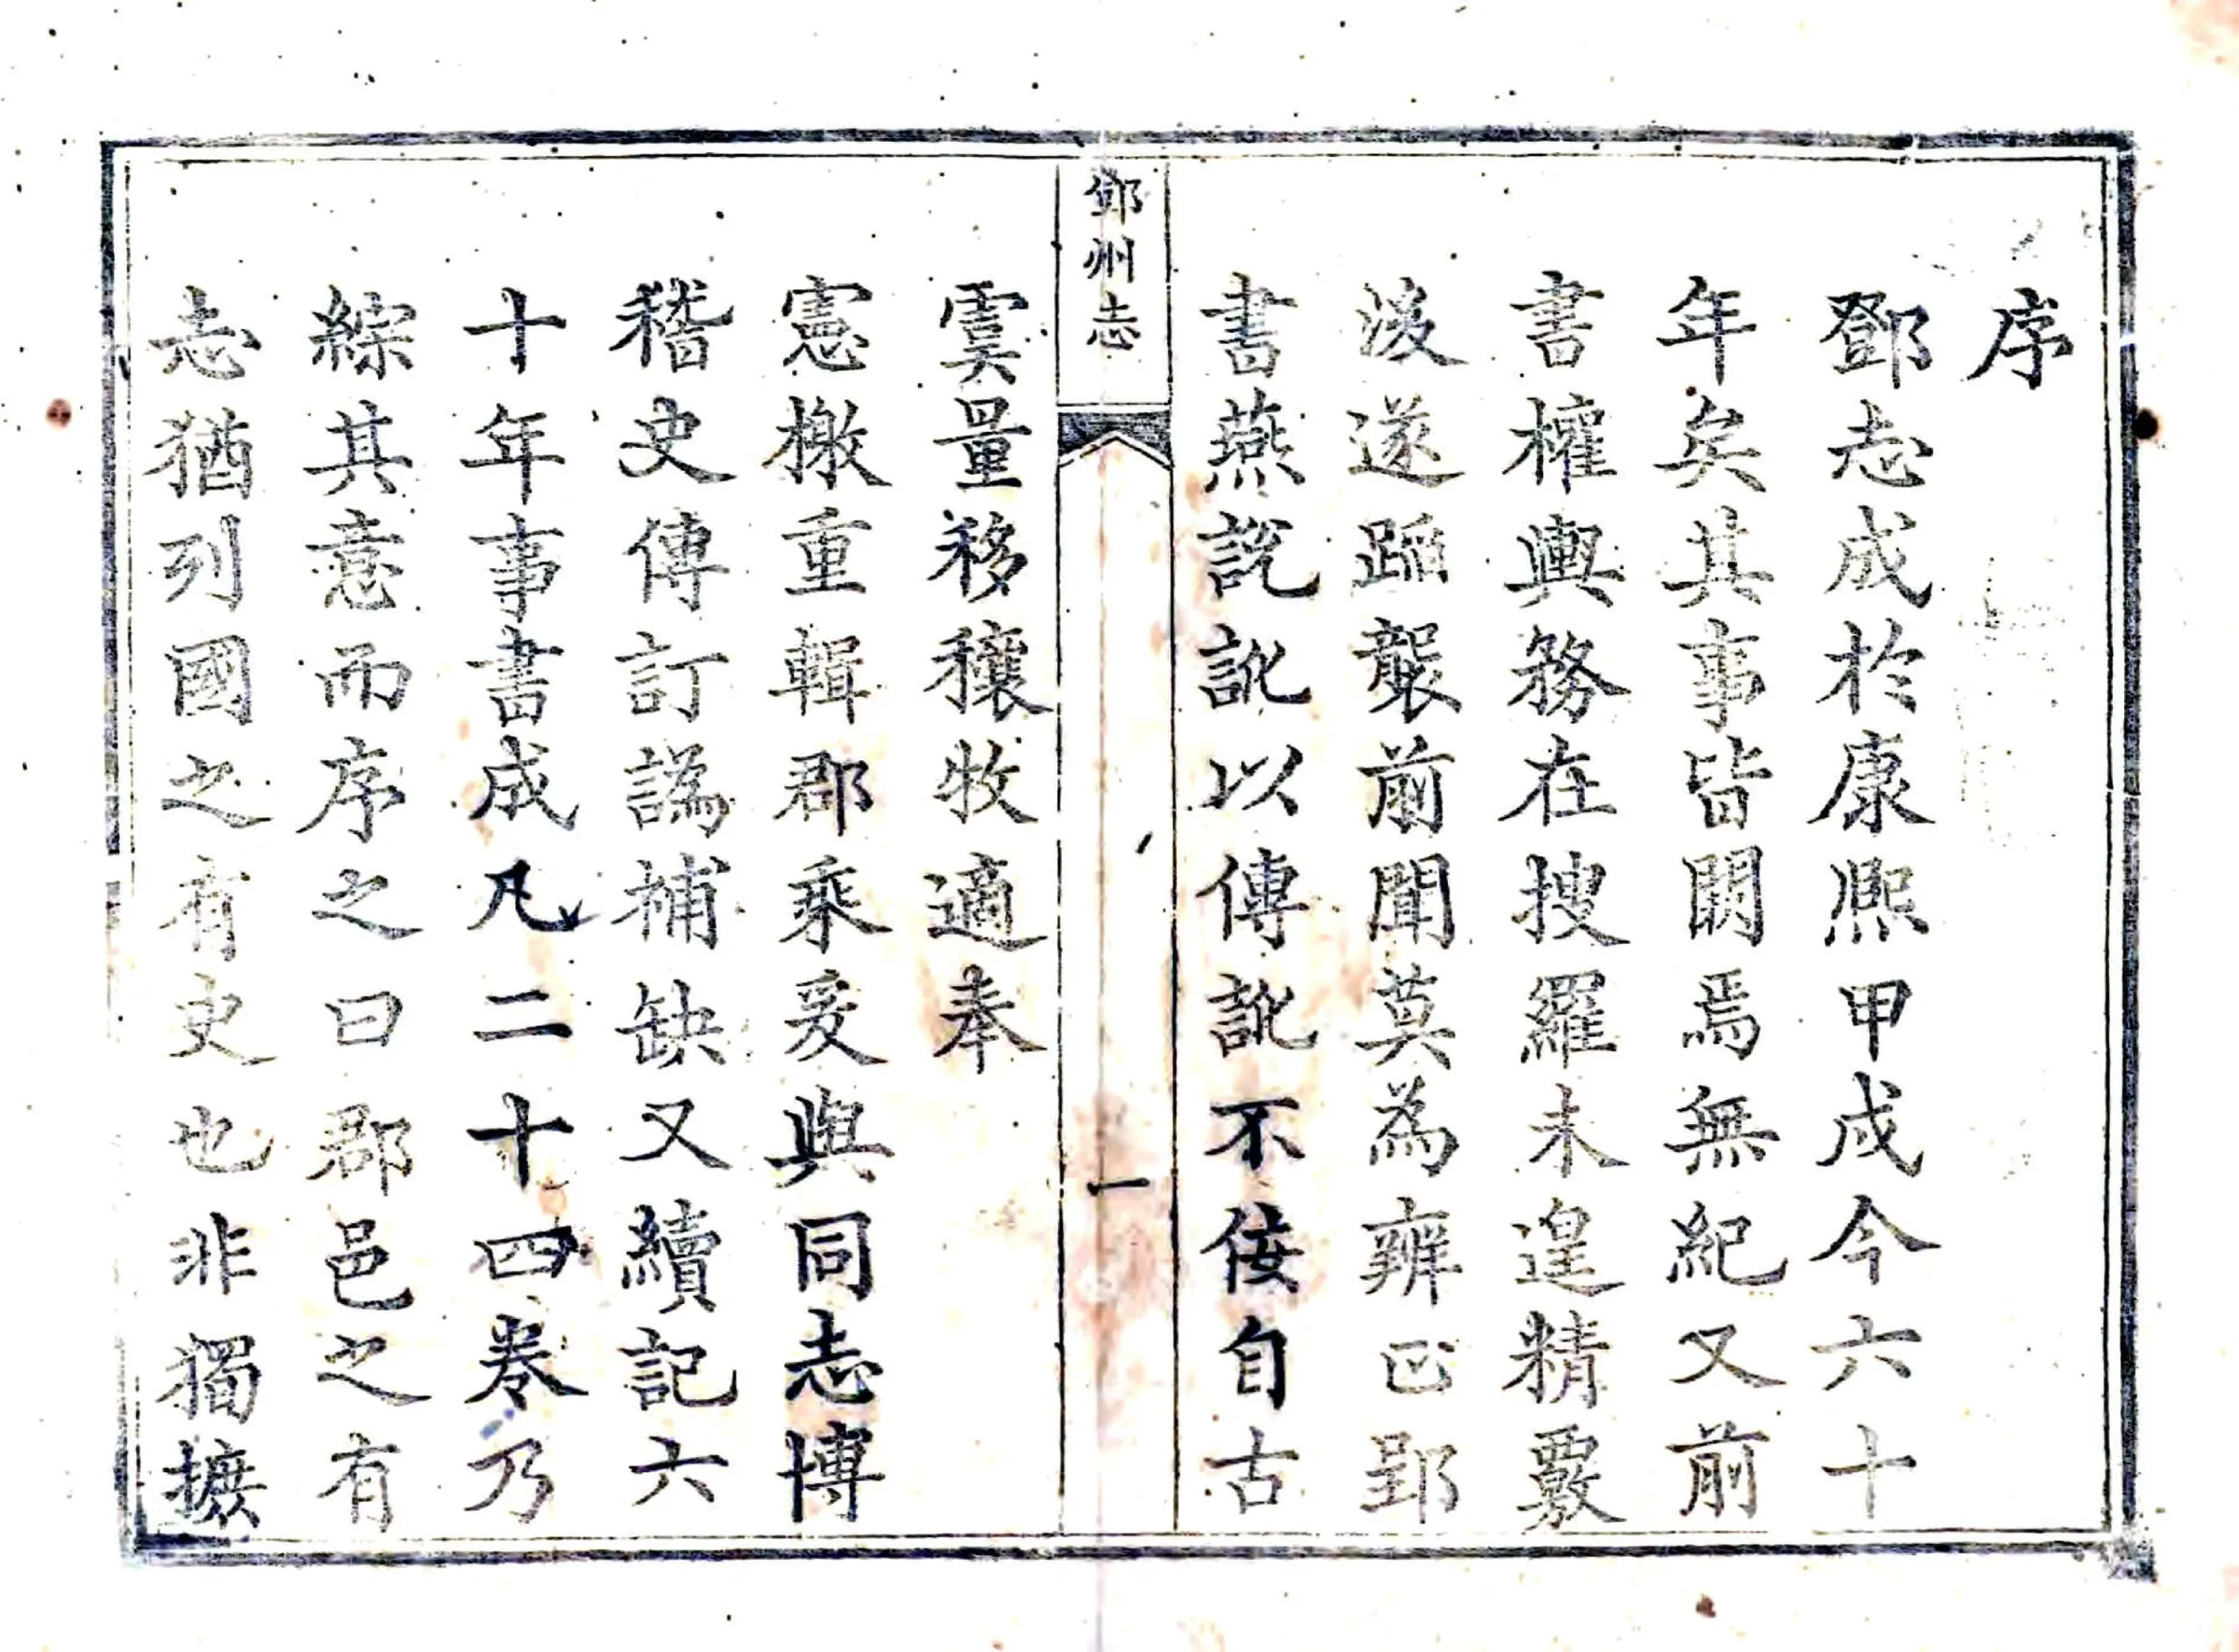 序
鄧志成於康熙甲戌今六十
年矣其事皆闕焉無紀又前
書權輿務在搜羅未遑精覈
後遂蹈襲前聞莫為辨正郢
書燕說訛以傳訛不佞自古
鄧州志
一
虞量移穰牧適奉
憲檄重輯郡乘爰與同志博
稽史傳訂譌補缺又續記六
十年事書成凡二十四卷乃
綜其意而序之曰郡邑之有
志猶列國之有史也非獨摭